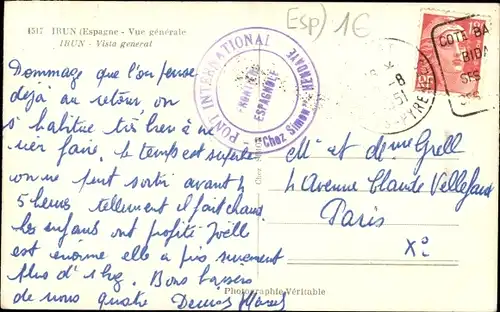 1517 IRUN (Espagne - Vue générale
IRUN - Vista general
Esp) 1€
Dommage que l'on pense
déjà au retour on
s'habitue très bien à ne
rien faire. le temps est superbe
on ne peut sortir avant
5 heures tellement il fait chaud
les enfants ont profité Joëlle
est énorme elle a pris surement
plus d'1 kg. Bons baisers
de nous quatre Denise
PONT INTERNATIONAL
HENDAYE
FRONTIERE
ESPAGNOLE
Chez Simon
COTE BA
BIDA
SES
-8
51
PYRE
Mr et deme Grell
4 Avenue Claude Vellefaux
Paris
Xe
Photographie Véritable